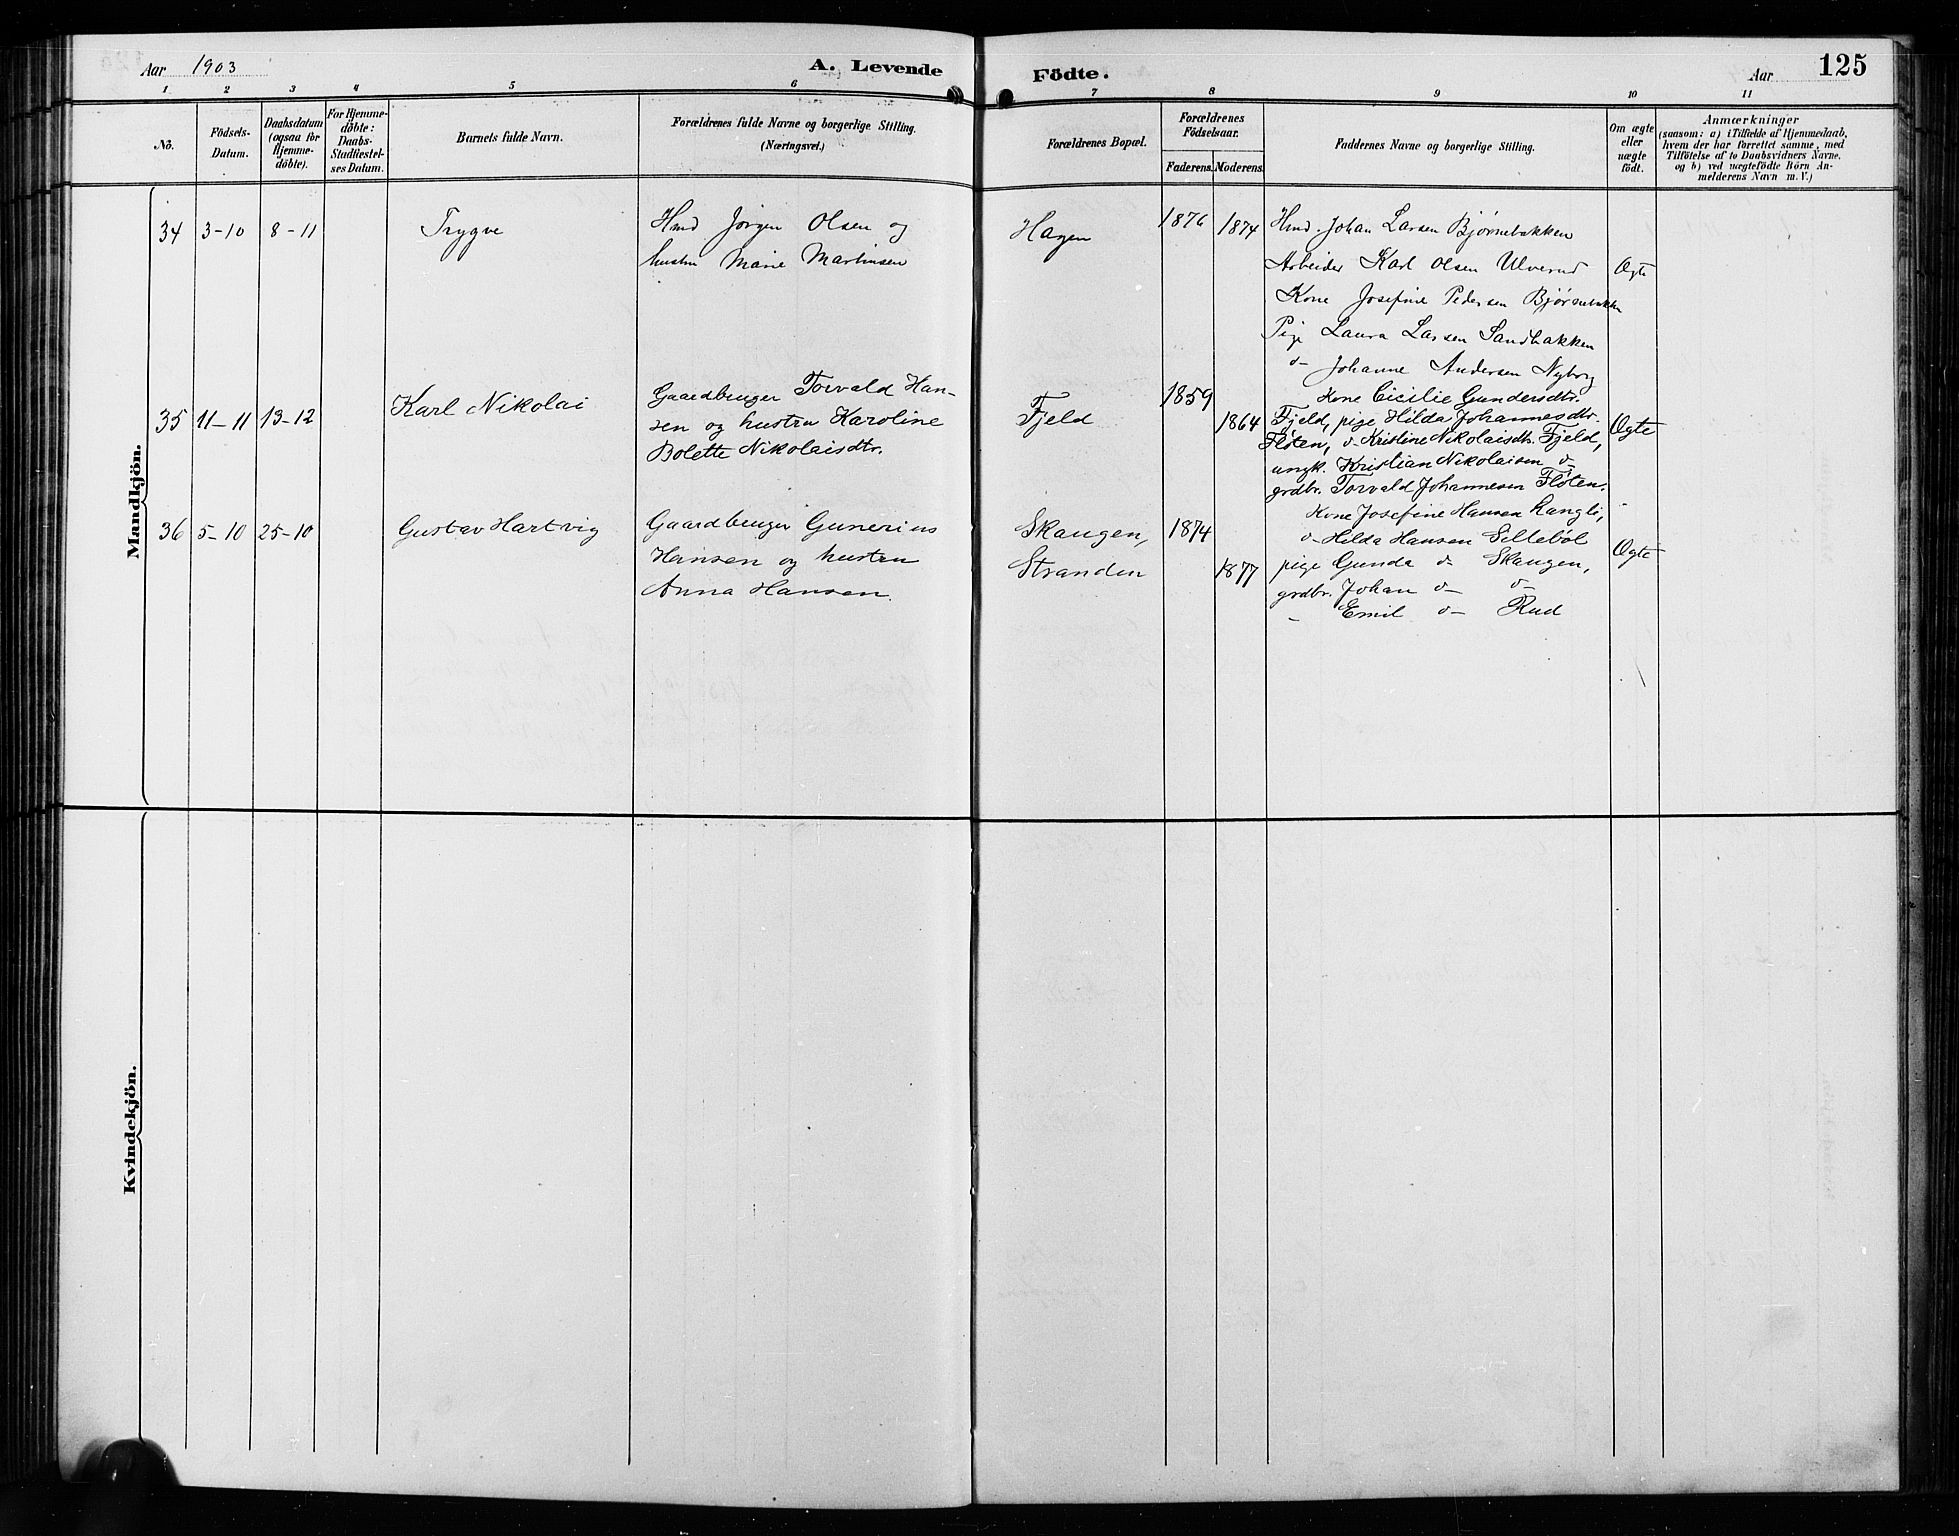 Aar 1903
A. Levende
Födte.
Aar
125
1 2 3 4 5 6 7 8 9 10 11
No.
Födsels-
Datum.
Daabsdatum
(ogsaa for
Hjemme-
döbte).
For Hjemme-
döbte:
Daabs-
Stadfæstel-
ses Datum.
Barnets fulde Navn.
Forældrenes fulde Navne og borgerlige Stilling.
(Næringsvei.)
Forældrenes Bopæl.
Forældrenes
Födselsaar.
Faderens. Moderens.
Faddernes Navne og borgerlige Stilling.
Om ægte
eller
uægte
født.
Anmærkninger
(saasom: a) i Tilfælde af Hjemmedaab,
hvem der har forrettet samme, med
Tilföielse af to Daabsvidners Navne,
og b) ved uægtefödte Börn An-
melderens Navn m. V.)
Mandkjön.
34 3-10 8-11
Trygve
Hmd Jørgen Olsen og
hustru Marie Martinsen
Hagen
1876 1874
Hmd. Johan Larsen Bjørnebakken
Arbeider Karl Olsen Ulverud
Kone Josefine Pedersen Bjørnebakken
Pige Laura Larsen Sandbakken
d- Johanne Andersen Nyborg
Ægte
35 11-11 13-12
Karl Nikolai
Gaardbruger Torvald Han-
sen og hustru Karoline
Bolette Nikolaisdtr.
Fjeld
1859
1864
Kone Cicilie Gundersdtr.
Fjeld, pige Hilda Johannesdtr.
Fløten, d- Kristine Nikolaisdtr. Fjeld,
ungk. Kristian Nikolaisen d-
grdbr. Torvald Johannesen Fløten.
Ægte
36 5-10 25-10
Gustav Hartvig
Gaardbruger Gunerius
Hansen og hustru
Anna Hansen.
Skaugen,
Stranden
1874
1877
Kone Josefine Hansen Langli,
d- Hilda Hansen Sillebøl
pige Gunda d- Skaugen,
grdbr. Johan d- d-
- Emil d- Rud
Ægte
Kvindekjön.